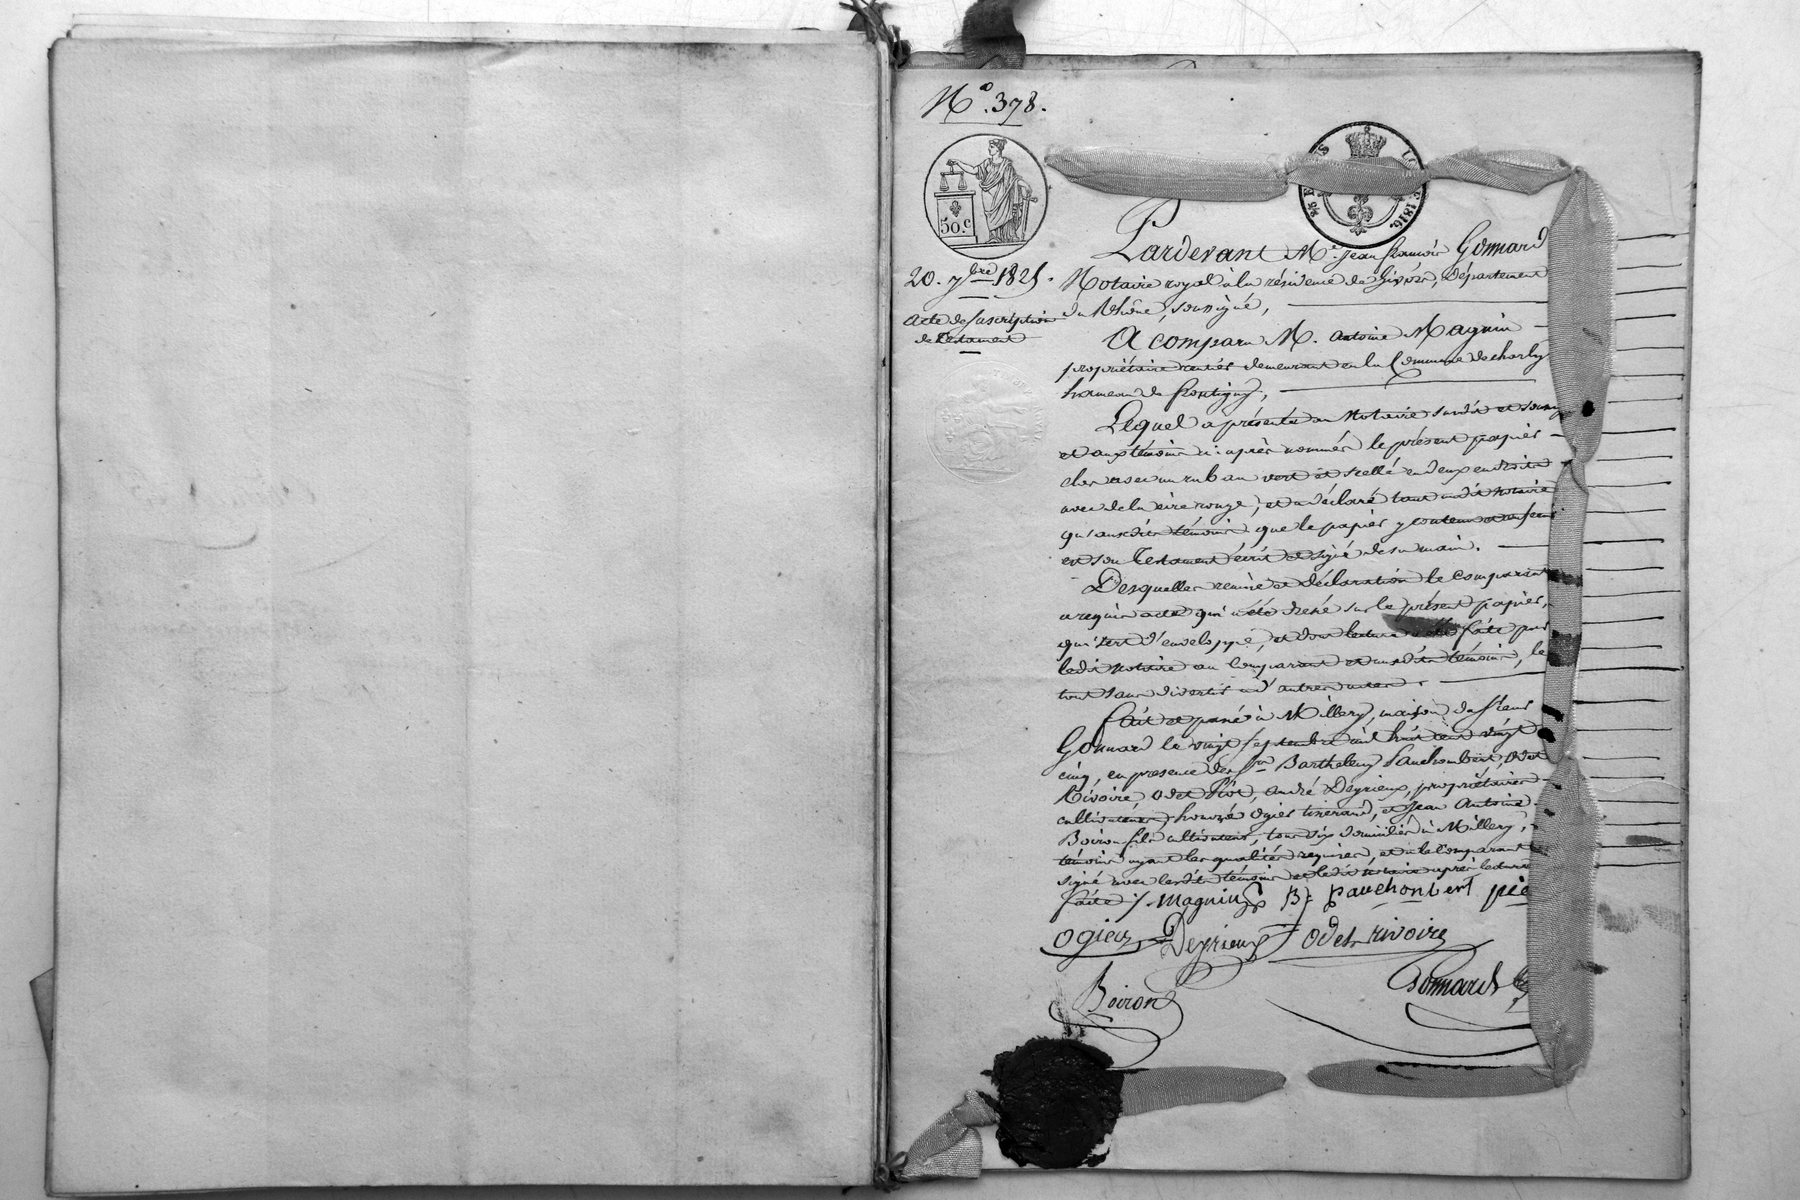 N.° 378.
50.c
LOI DE 1816.
20. 7bre 1825.
Acte de suscription
de testament
Pardevant Me. Jean François Gonnard
Notaire royal à la résidence de Givors, département
du Rhône, soussigné,
A comparu M. Antoine Magnin
propriétaire rentier demeurant en la Commune de charly
hameau de frontigny,
Lequel a présenté au Notaire susdit et soussig
et aux témoins ci-après nommés le présent papier
clos avec un ruban vert et scellé en deux endroits
avec de la cire rouge, et a déclaré tant audit notaire
qu'auxdits témoins que le papier y contenu
est son Testament écrit et signé de sa main.
Desquelles remise et déclaration le comparant
a requis acte qui a été dressé sur le présent papier,
qui sert d'enveloppe, et dont lecture a été faite par
ledit notaire au comparant et auxdits témoins, le
tout sans divertir à d'autres actes.
Fait et passé à Millery, maison du sieur
Gonnard le vingt septembre mil huit cent vingt
cinq, en presence des srs Barthelemy Pauchombert, Odet
Rivoire, Odet Piot, André Deyrieux, propriétaires
cultivateurs, Ogier tisserand, et Jean Antoine
Boiron fils cultivateur, tous six domiciliés à Millery,
témoins ayant les qualités requises, et a le comparant
signé avec lesdits témoins et ledit notaire après lecture
faite ./. Magnin B. Pauchonbert pio
Ogier Deyrieux Odet rivoire
Boiron Gonnard